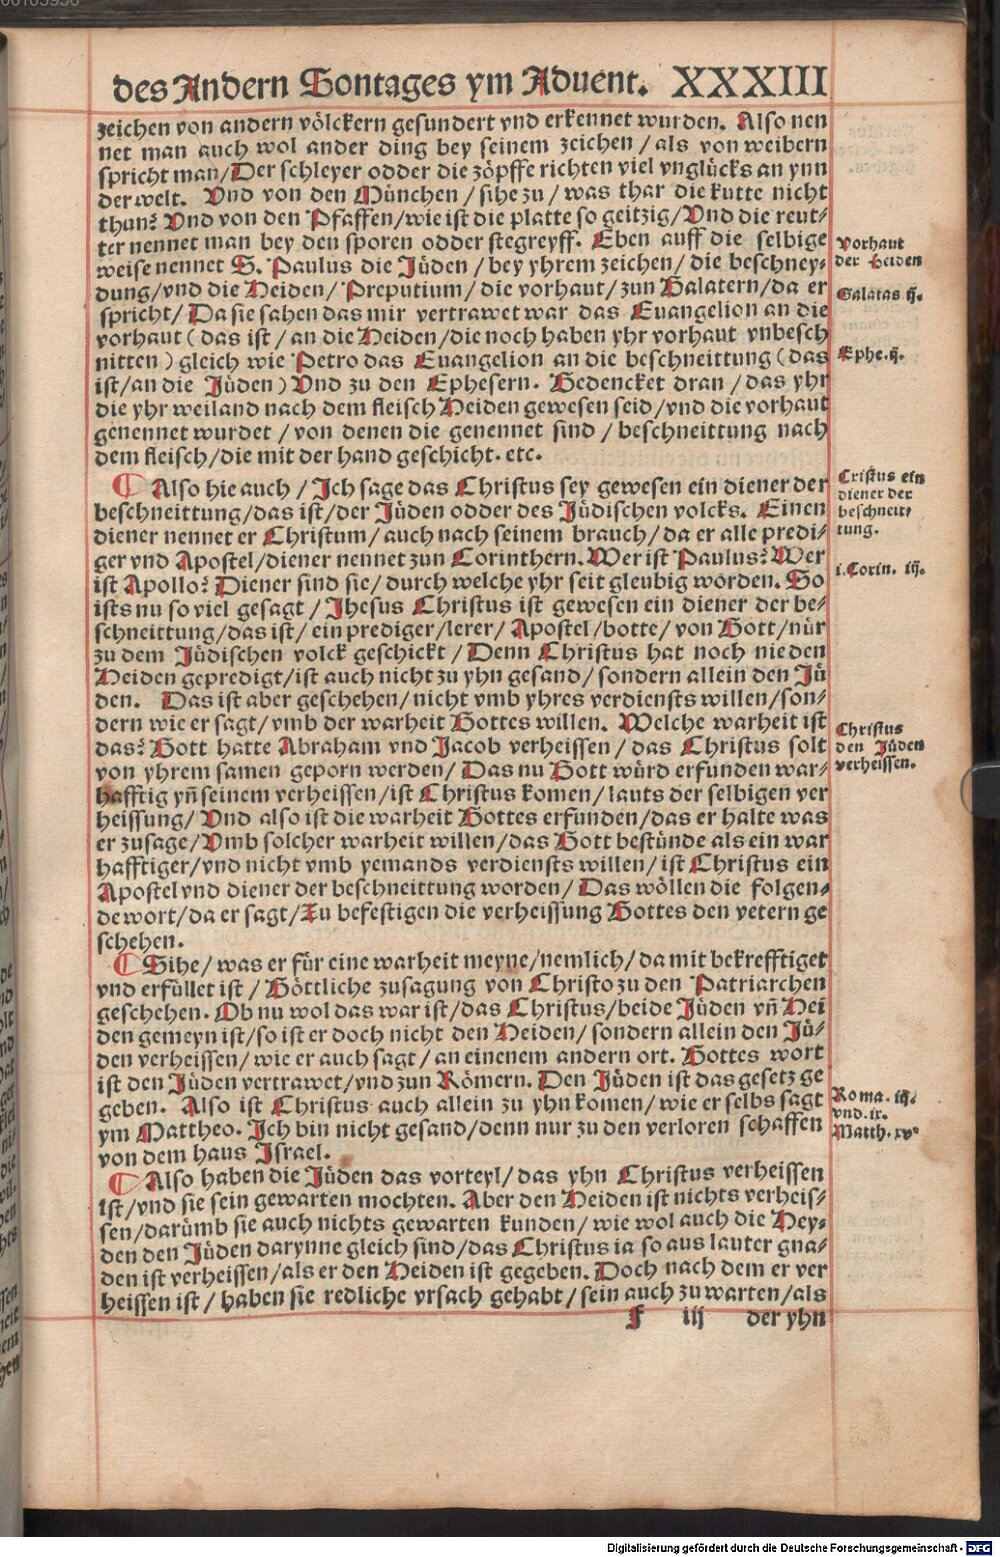 des Andern Sontages ym Aduent. XXXIII
zeichen von andern völckern gesundert vnd erkennet wurden. Also nen
net man auch wol ander ding bey seinem zeichen / als von weibern
spricht man/Der schleyer odder die zöpffe richten viel vnglücks an ynn
der welt. Vnd von den München / sihe zu / was thar die kutte nicht
thun? Vnd von den Pfaffen/wie ist die platte so geitzig/Vnd die reut-
ter nennet man bey den sporen odder stegreyff. Eben auff die selbige
weise nennet S. Paulus die Jüden / bey yhrem zeichen / die beschney-
dung/vnd die Heiden/ Preputium / die vorhaut / zun Galatern/da er
spricht/ Da sie sahen das mir vertrawet war das Euangelion an die
vorhaut ( das ist / an die Heiden/die noch haben yhr vorhaut vnbesch
nitten ) gleich wie Petro das Euangelion an die beschneittung (das
ist/an die Jüden) Vnd zu den Ephesern. Gedencket dran / das yhr
die yhr weiland nach dem fleisch Heiden gewesen seid/vnd die vorhaut
genennet wurdet / von denen die genennet sind / beschneittung nach
dem fleisch/die mit der hand geschicht. etc.
Vorhaut
der Heiden
Galatas ij.
Ephe. ij.
¶ Also hie auch / Ich sage das Christus sey gewesen ein diener der
beschneittung/das ist/der Jüden odder des Jüdischen volcks. Einen
diener nennet er Christum/auch nach seinem brauch/da er alle predi-
ger vnd Apostel/diener nennet zun Corinthern. Wer ist Paulus? Wer
ist Apollo? Diener sind sie/durch welche yhr seit gleubig worden. So
ists nu so viel gesagt / Jhesus Christus ist gewesen ein diener der be-
schneittung/das ist/ ein prediger/lerer/ Apostel/botte/ von Gott/nür
zu dem Jüdischen volck geschickt / Denn Christus hat noch nie den
Heiden gepredigt/ist auch nicht zu yhn gesand/ sondern allein den Jü
den. Das ist aber geschehen/nicht vmb yhres verdiensts willen/son-
dern wie er sagt/vmb der warheit Gottes willen. Welche warheit ist
das? Gott hatte Abraham vnd Jacob verheissen / das Christus solt
von yhrem samen geporn werden/ Das nu Gott würd erfunden war-
hafftig yn̄ seinem verheissen/ist Christus komen/lauts der selbigen ver
heissung/ Vnd also ist die warheit Gottes erfunden/das er halte was
er zusage/Vmb solcher warheit willen/das Gott bestünde als ein war
hafftiger/vnd nicht vmb yemands verdiensts willen/ist Christus ein
Apostel vnd diener der beschneittung worden/ Das wöllen die folgen-
de wort/da er sagt/Zu befestigen die verheissung Gottes den vetern ge
schehen.
Cristus ein
diener der
beschneit-
tung.
i. Corin. iij.
Christus
den Jüden
verheissen.
¶ Sihe/ was er für eine warheit meyne/nemlich/da mit bekrefftiget
vnd erfüllet ist / Göttliche zusagung von Christo zu den Patriarchen
geschehen. Ob nu wol das war ist/das Christus/beide Jüden vn̄ Hei
den gemeyn ist/so ist er doch nicht den Heiden/ sondern allein den Jü-
den verheissen/ wie er auch sagt / an einenem andern ort. Gottes wort
ist den Jüden vertrawet/vnd zun Römern. Den Jüden ist das gesetz ge
geben. Also ist Christus auch allein zu yhn komen/ wie er selbs sagt
ym Mattheo. Ich bin nicht gesand/denn nur zu den verloren schaffen
von dem haus Israel.
Roma. iij.
vnd. ix.
Matth. xv
¶ Also haben die Jüden das vorteyl/ das yhn Christus verheissen
ist/vnd sie sein gewarten mochten. Aber den Heiden ist nichts verheis-
sen/darümb sie auch nichts gewarten kunden/ wie wol auch die Hey-
den den Jüden darynne gleich sind/das Christus ia so aus lauter gna-
den ist verheissen/als er den Heiden ist gegeben. Doch nach dem er ver
heissen ist / haben sie redliche vrsach gehabt / sein auch zu warten/als
F iij der yhn
Digitalisierung gefördert durch die Deutsche Forschungsgemeinschaft - DFG